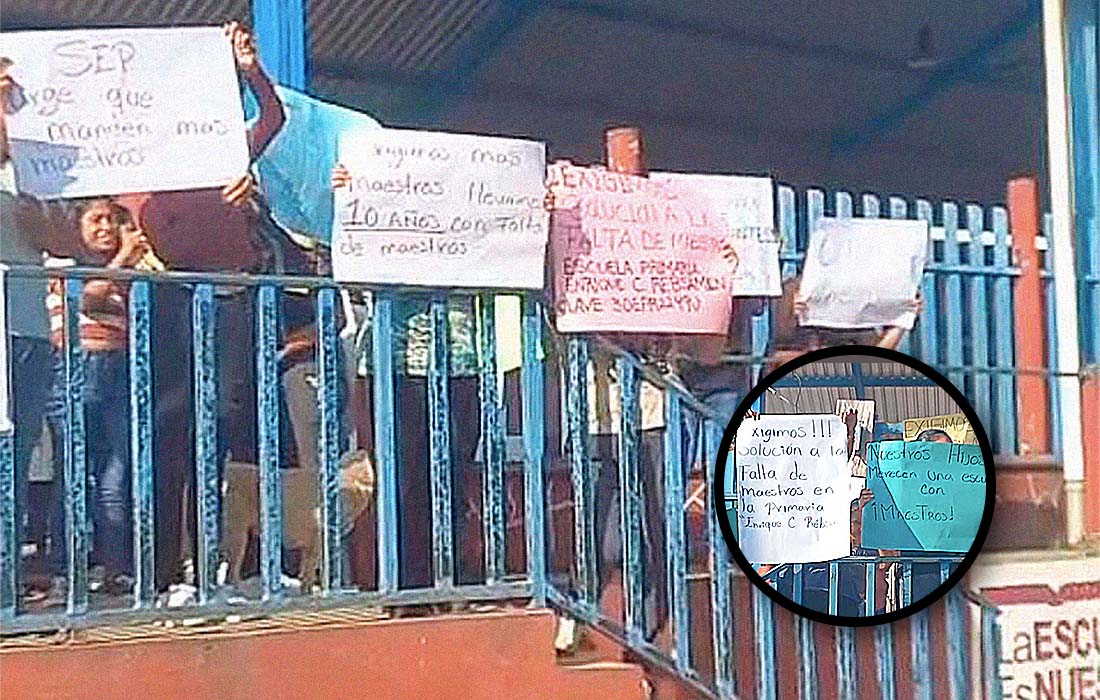 SEP
urge que
manden mas
maestros
xigimos mas
maestros llevamos
10 AÑOS con Falta
de maestros
EXIGIMOS
SOLUCIÓN A LA
FALTA DE MAES
ESCUELA PRIMARIA
ENRIQUE C REBSAMEN
CLAVE
xigimos!!!
Solución a la
Falta de
maestros en
la Primaria
Enrique C Réb
EXIGIMOS
Nuestros Hijos
Merecen una escu
con
¡MAESTROS!
LaESCU
EsNUES